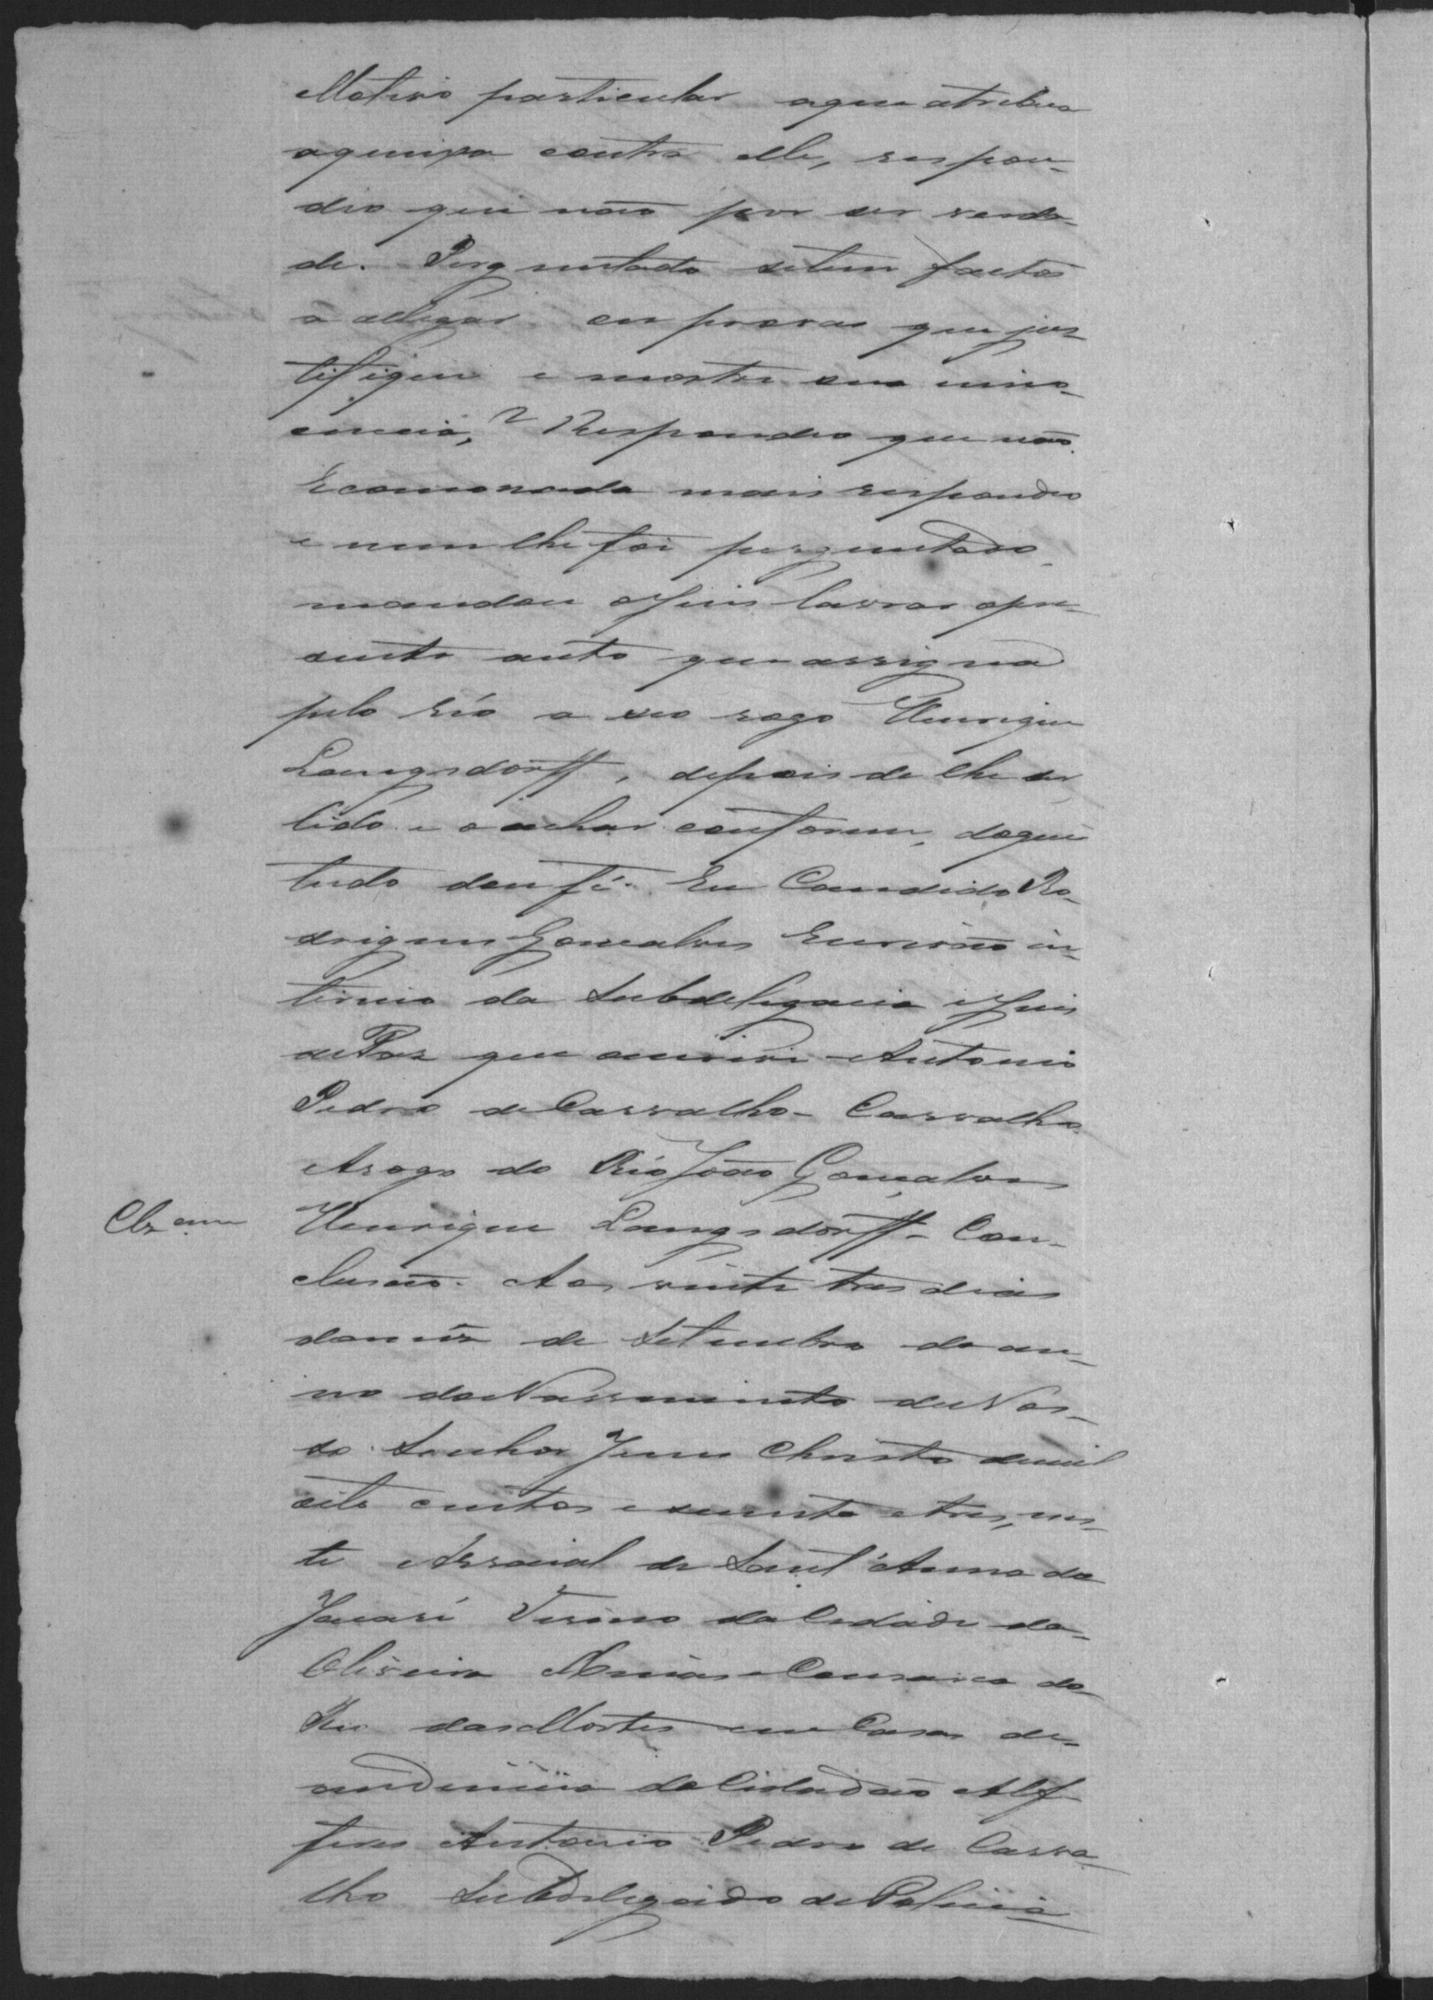 Motivo particular aque atribua
aqueixa contra elle, respon-
deo que não por ser verda-
de. Perguntado setem factos
a allegar ou provas que jus-
tifique e mostre sua inno-
cencia,? Respondeo que não.
Ecomonada mais respondeo
e nem lhe foi perguntado,
mandou oJuis lavrar opre-
sente auto que assigna
pelo réo a seo rogo Henrique
Langsdorff, depois de lhe ser
lido e o achar conforme, doque
tudo dou fé. Eu Candido Ro-
drigues Gonçalves Escrivão in-
terino da Subdelegacia eJuis
dePaz que escrevi - Antonio
Pedro deCarvalho - Carvalho
Arogo do Réo João Gonçalves
Henrique Langsdorff - Con-
clusão. Aos vinte tres dias
domês de Setembro do an-
no doNascimento deNos-
so Senhor Jesus Christo demil
oito centos esecenta etres, nes-
te Arraial de Sant'Anna do
Jacaré Termo daCidade de
Oliveira Minas eComarca do
Rio dasMortes em Casa de
residencia doCidadão Alf
feres Antonio Pedro de Carva-
lho Subdelegado dePolicia